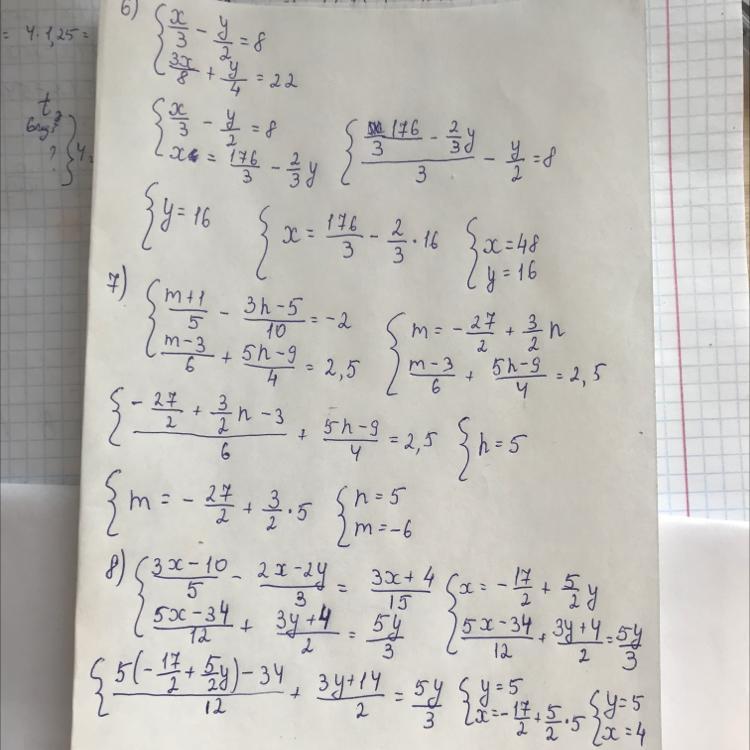 = 4·1,25 =
t
6) { x/3 - y/2 = 8
3x/8 + y/4 = 22
{ x/3 - y/2 = 8
x = 176/3 - 2/3 y
{ (176/3 - 2/3 y)/3 - y/2 = 8
{ y = 16
{ x = 176/3 - 2/3 · 16
{ x = 48
y = 16
7) { (m+1)/5 - (3n-5)/10 = -2
(m-3)/6 + (5n-9)/4 = 2,5
{ m = -27/2 + 3/2 n
(m-3)/6 + (5n-9)/4 = 2,5
{ (-27/2 + 3/2 n - 3)/6 + (5n-9)/4 = 2,5
{ n = 5
{ m = -27/2 + 3/2 · 5
{ n = 5
m = -6
8) { (3x-10)/5 - (2x-2y)/3 = (3x+4)/15
(5x-34)/12 + (3y+4)/2 = 5y/3
{ x = -17/2 + 5/2 y
(5x-34)/12 + (3y+4)/2 = 5y/3
{ (5(-17/2 + 5/2 y) - 34)/12 + (3y+14)/2 = 5y/3
{ y = 5
x = -17/2 + 5/2 · 5
{ y = 5
x = 4